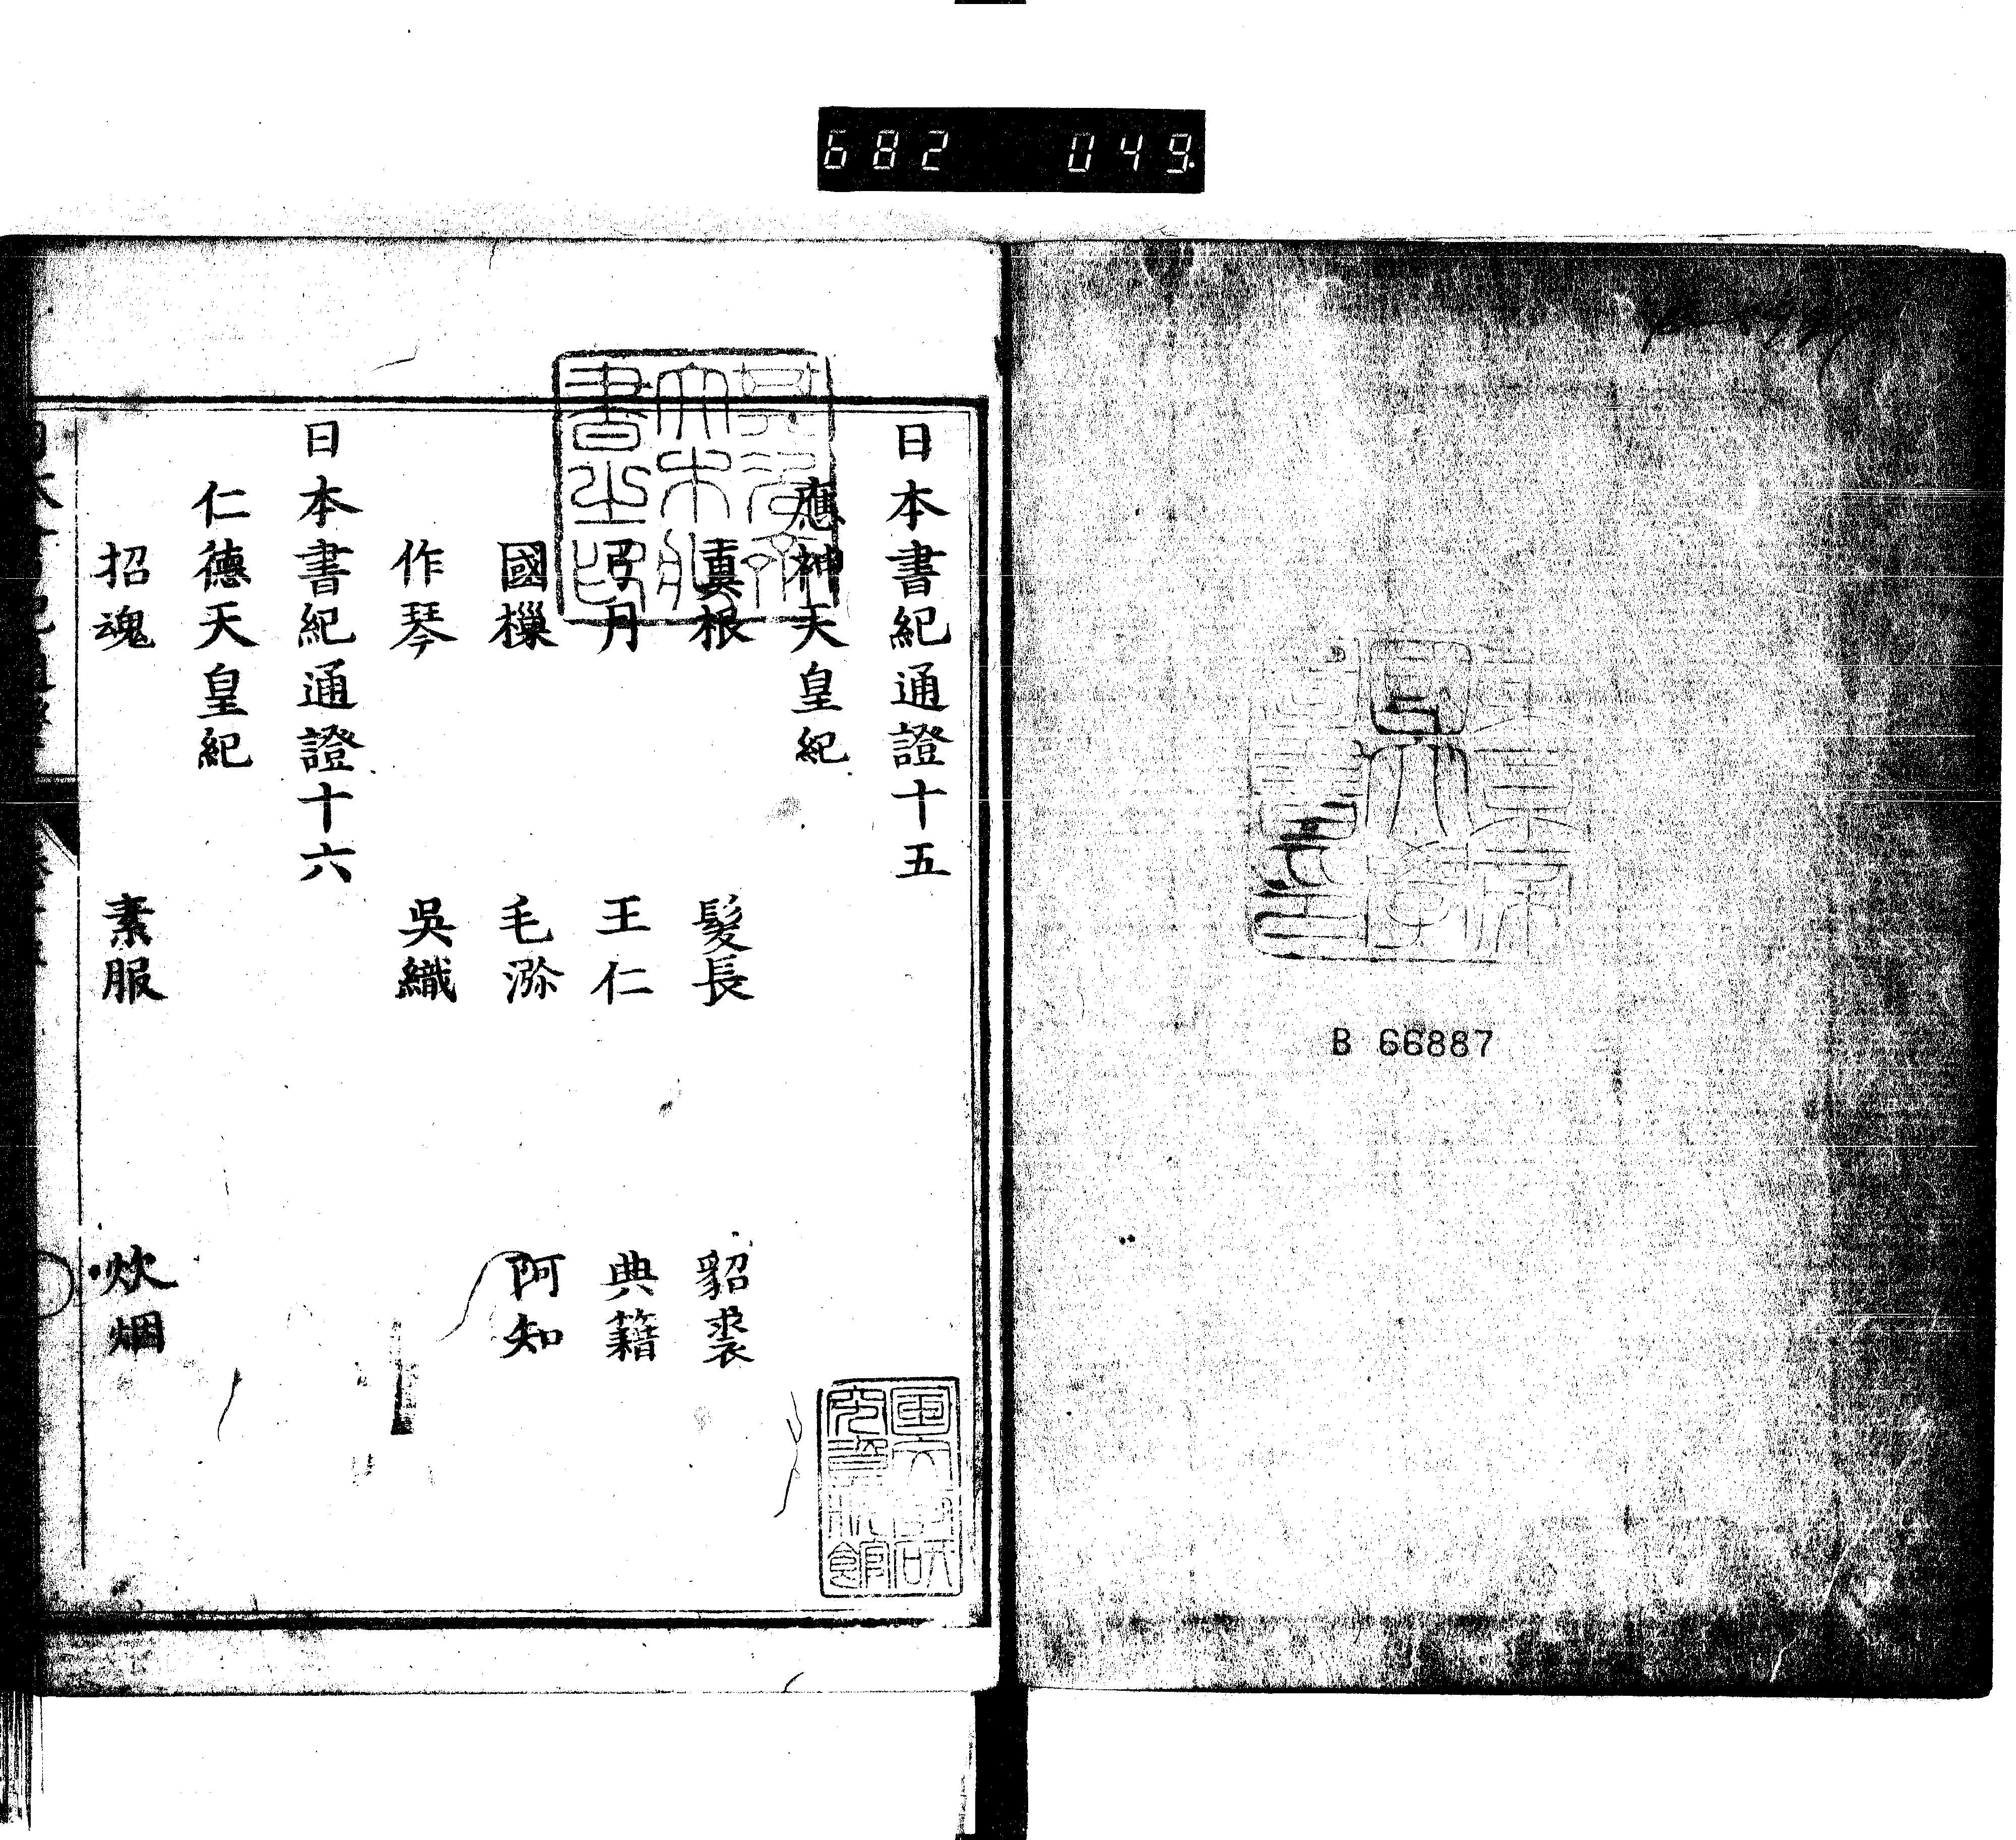 682 049
B 66887
日本書紀通證十五
應神天皇紀
眞根 髮長 貂裘
弓月 王仁 典籍
國樔 毛瀰 阿知
作琴 吳織
日本書紀通證十六
仁德天皇紀
招魂 素服 炊烟